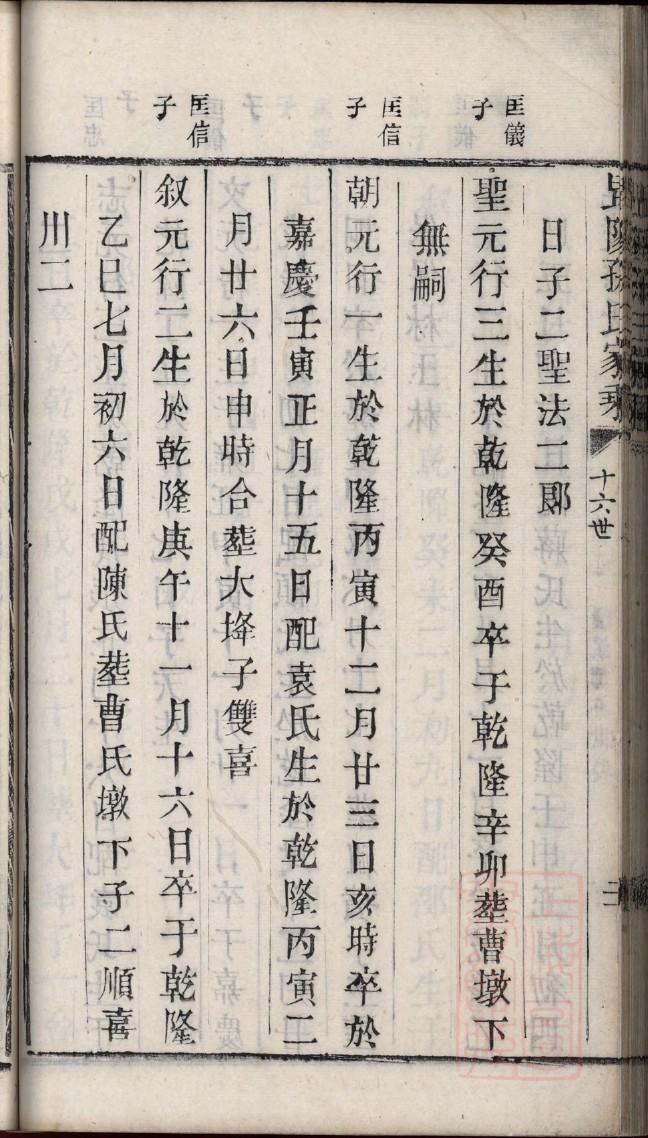 暨陽孫氏家乘
十六世
日子二聖法二郎
匡儀子
聖元行三生於乾隆癸酉卒于乾隆辛卯塟曹墩下
無嗣
匡信子
朝元行一生於乾隆丙寅十二月廿三日亥時卒於
嘉慶壬寅正月十五日配袁氏生於乾隆丙寅二
月廿六日申時合塟大埄子雙喜
匡信子
叙元行二生於乾隆庚午十一月十六日卒于乾隆
乙巳七月初六日配陳氏塟曹氏墩下子二順喜
卅二